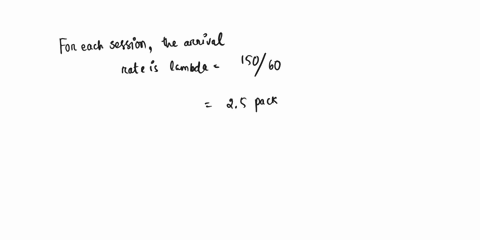 For each session, the arrival
rate is lambda = 150/60
= 2.5 pack